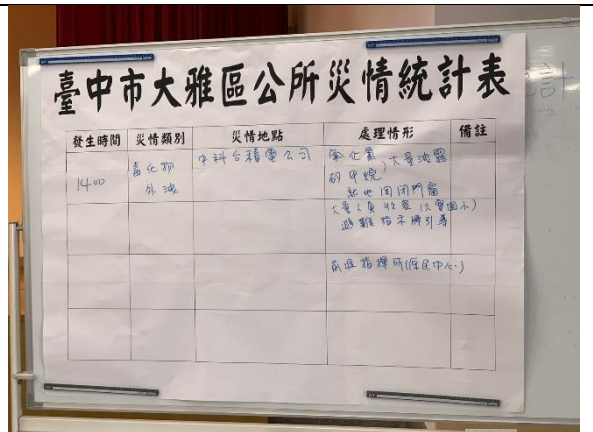 臺中市大雅區公所災情統計表
發生時間 災情類別 災情地點 處理情形 備註
1400
毒化物
外洩
中科台積電公司
氰化氫
砷甲烷 大量洩露
就地關閉門窗
大量人員收容(大雅國小)
避難指示牌引導
前進指揮所(原民中心)
計